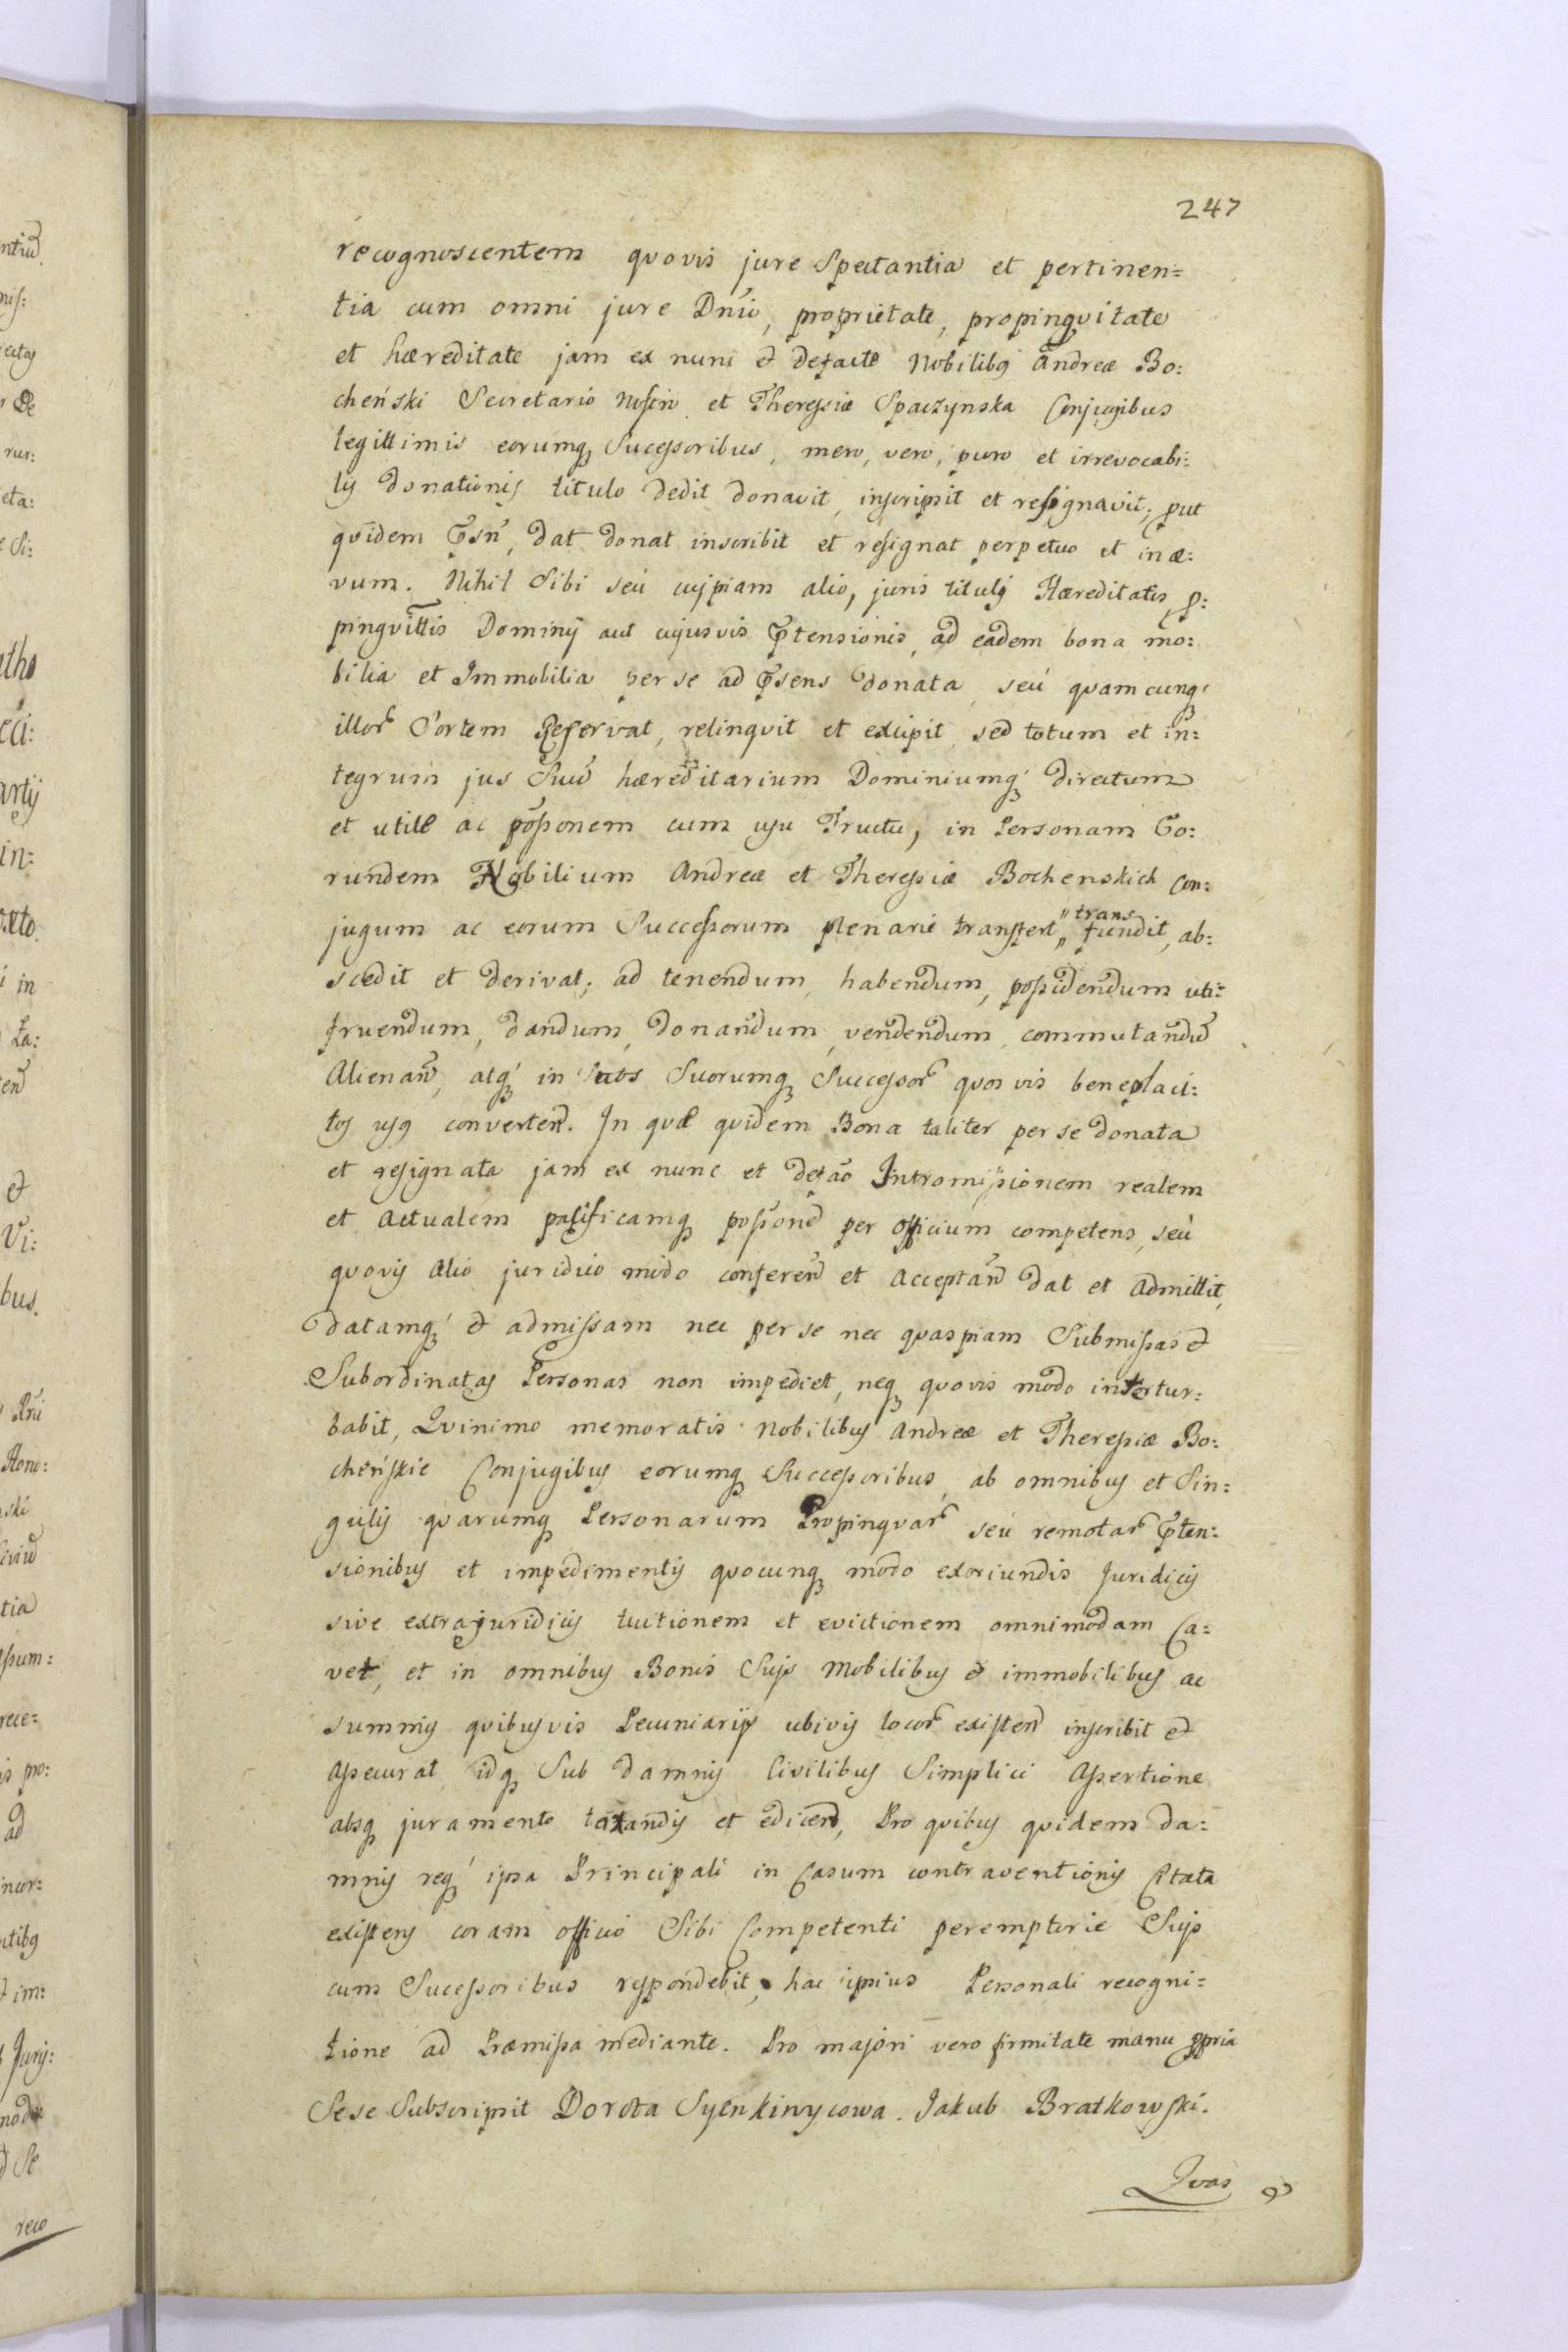 247
recognoscentem quovis jure Spectantia et pertinen=
tia cum omni jure Dn̄io, proprietate, propinqvitate
et hæreditate jam ex nunc et defacto Nobilibꝰ Andreæ Bo:
cheński Secretario Nostro et Theressiæ Spaczynska Conjugibus
legittimis eorumqꝫ Sucessoribus, mero, vero, puro et irrevocabi:
lis donationis titulo dedit donavit, inscripsit et resignavit; put
qvidem p̄sn̄, dat donat inscribit et resignat perpetuo et in æ:
vum. Nihil Sibi seú cujpiam alio, juris tituli Hæreditatis, p:
pinqvittis Dominij aut cujusvis p̄tensionis, ad eadem bona mo:
bilia et Immobilia per se ad p̄sens donata, seú quamcunqꝫ
illor̄ Sortem Reservat, relinqvit et excipit, sed totum et in:
tegrum jus Suū hæreditarium Dominiumqꝫ directum
et utile ac possonem cum usu Fructu, in Personam Eo:
rundem Nobilium Andreæ et Theressiæ Bochenskich Con:
jugum ac eorum Successorum plenarie transfert, "trans" fundit, ab:
scedit et derivat; ad tenendum, habendum, possidendum uti:
fruendum, dandum, donandum, vendendum, commutandū
Alienan̄, atqꝫ in Suos Suorumqꝫ Successor̄ quosvis beneplaci:
tos usꝰ converten̄. In quæ quidem Bona taliter per se donata
et resignata jam ex nunc et defāo Intromissionem realem
et Actualem pacificamqꝫ possonē per Officium competens, seú
quovis Alio juridico modo conferen̄ et Acceptan̄ dat et Admittit,
datamqꝫ et admissam nec per se nec quaspiam Submissas et
Subordinatas Personas non impediet, neqꝫ quovis modo intertur:
babit, Qvinimo memoratis Nobilibus Andreæ et Theressiæ Bo:
cheńskie Conjugibus eorumqꝫ Successoribus, ab omnibus et Sin:
gulis qvarumqꝫ Personarum Propinqvar̄ seú remotar̄ p̄ten:
sionibus et impedimentis quocunqꝫ modo exoriundis Juridicis
sive extrajuridicis tuitionem et evictionem omnimodam Ca:
vet, et in omnibus Bonis Suis Mobilibus et immobilibus ac
summis qvibusvis Pecuniarijs ubivis locor̄ existen̄ inscribit et
Assecurat, idqꝫ Sub damnis Civilibus Simplici Assertione
absqꝫ juramento taxandis et edicen̄, Pro quibus quidem da:
mnis reqꝫ ipsa Principali in Casum contraventionis Citata
existens coram officio Sibi Competenti peremptorie Suis
cum Sucessoribus respondebit, hac ipsius Personali recogni=
tione ad Præmissa mediante. Pro majori vero firmitate manu ppria
Sese Subscripsit Dorota Syenkinycowa. Jakub Bratkowski.
Qvas